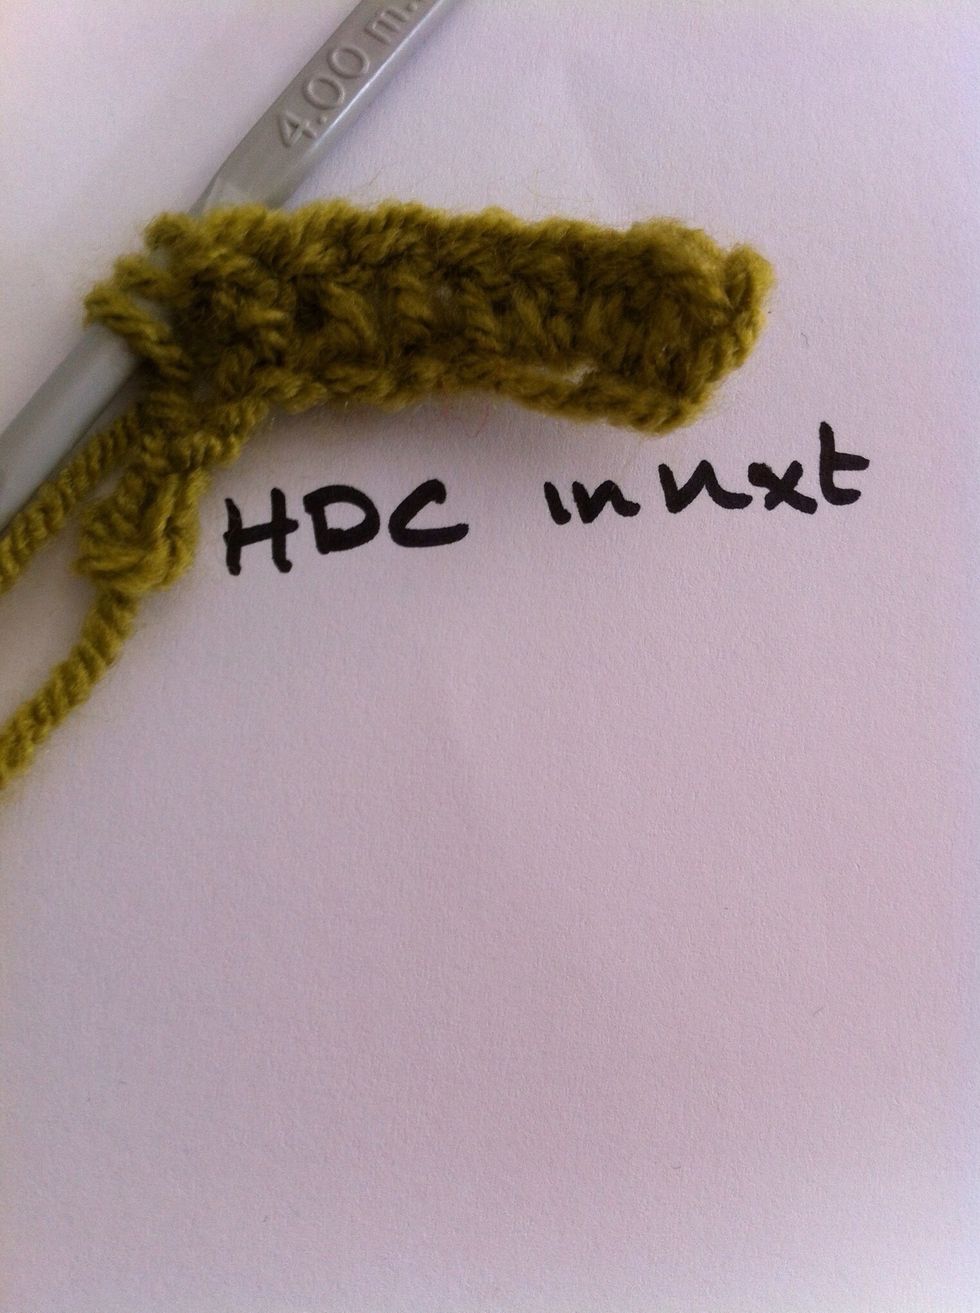 4.00 m.
HDC in nxt